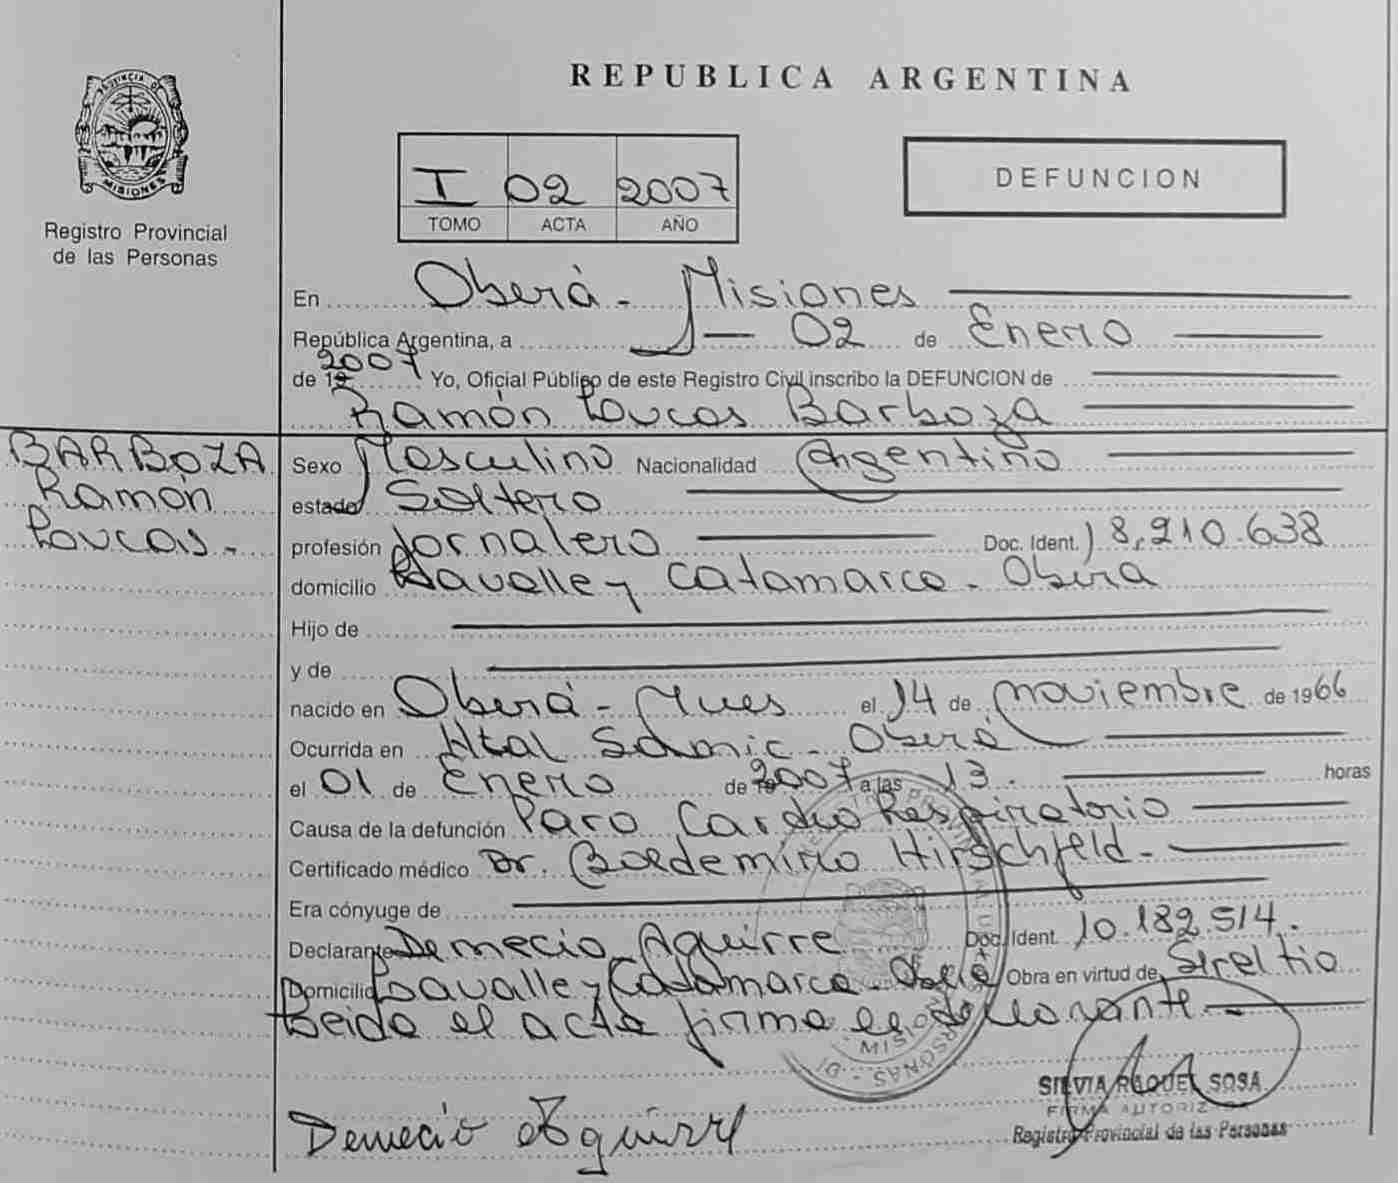 REPUBLICA ARGENTINA
PROVINCIA DE MISIONES
Registro Provincial
de las Personas
I 02 2007
TOMO ACTA AÑO
DEFUNCION
En Oberá - Misiones
República Argentina, a 02 de Enero
de 19 2007 Yo, Oficial Público de este Registro Civil inscribo la DEFUNCION de
Ramón Loucas Barboza
BARBOZA
Ramón
Loucas -
Sexo Masculino Nacionalidad Argentino
estado Soltero
profesión Jornalero Doc. Ident. 18.210.638
domicilio Lavalle y Catamarca - Oberá
Hijo de
y de
nacido en Oberá - Mnes el 14 de noviembre de 1966
Ocurrida en Htal Samic - Oberá
el 01 de Enero de 2007 a las 13. horas
Causa de la defunción Paro Cardio Respiratorio
Certificado médico Dr. Boldemirio Hirschfeld -
Era cónyuge de
Declarante Demecio Aguirre Doc. Ident. 10.182.514.
Domicilio Lavalle y Catamarca - Oberá Obra en virtud de Ser el tio
Leida el acta firma el declarante
Demecio Aguirre
SILVIA RAQUEL SOSA
FIRMA AUTORIZADA
Registro Provincial de las Personas